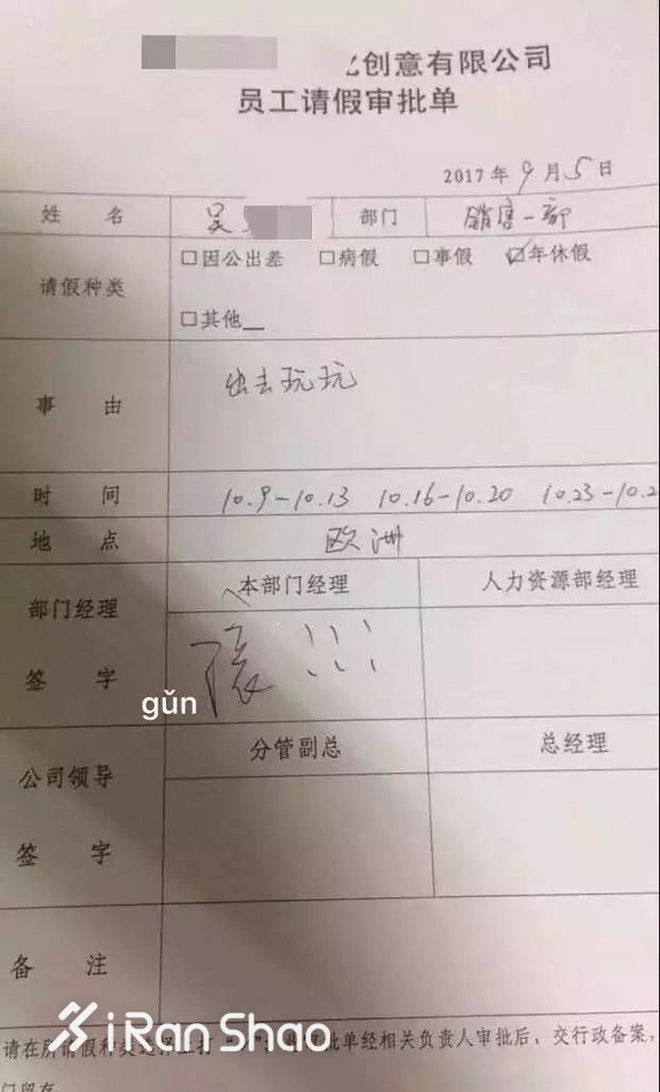 创意有限公司
员工请假审批单
2017年9月5日
姓名 吴 部门 销售一部
请假种类 □因公出差 □病假 □事假 ☑年休假
□其他__
事由 出去玩玩
时间 10.9-10.13 10.16-10.20 10.23-10.2
地点 欧洲
部门经理签字 本部门经理 人力资源部经理
!!!
gǔn
公司领导签字 分管副总 总经理
备注
iRanShao
请在所请假种类选择上打“ ” 批单经相关负责人审批后，交行政备案，
门留存